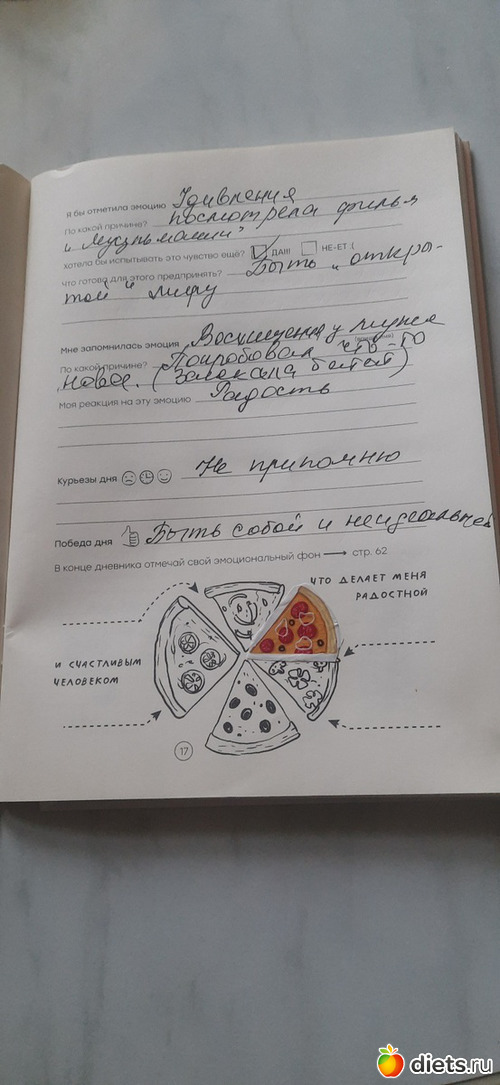 Я бы отметила эмоцию Удивления
По какой причине? посмотрела фильм
"
хотела бы испытывать это чувство ещё? ДА!!! НЕ-ЕТ :(
Что готова для этого предпринять? Быть „откры-
той" миру
Мне запомнилась эмоция Восхищения у мужа
По какой причине? Попробовал что-то
новое. (Заказала батат)
Моя реакция на эту эмоцию Радость
Курьезы дня Не припомню
Победа дня Быть собой и неидеальной
В конце дневника отмечай свой эмоциональный фон → стр. 62
ЧТО ДЕЛАЕТ МЕНЯ
РАДОСТНОЙ
И СЧАСТЛИВЫМ
ЧЕЛОВЕКОМ
17
diets.ru